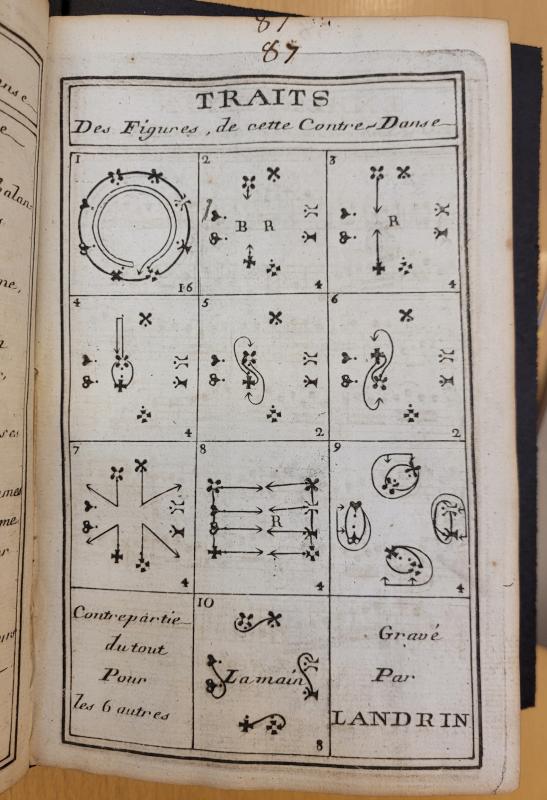 87
87
TRAITS
Des Figures, de cette Contre-Danse
1
16
2
B R
4
3
R
4
4
4
5
2
6
2
7
4
8
R
4
9
4
Contrepartie
du tout
Pour
les 6 autres
10
La main
8
Gravé
Par
LANDRIN